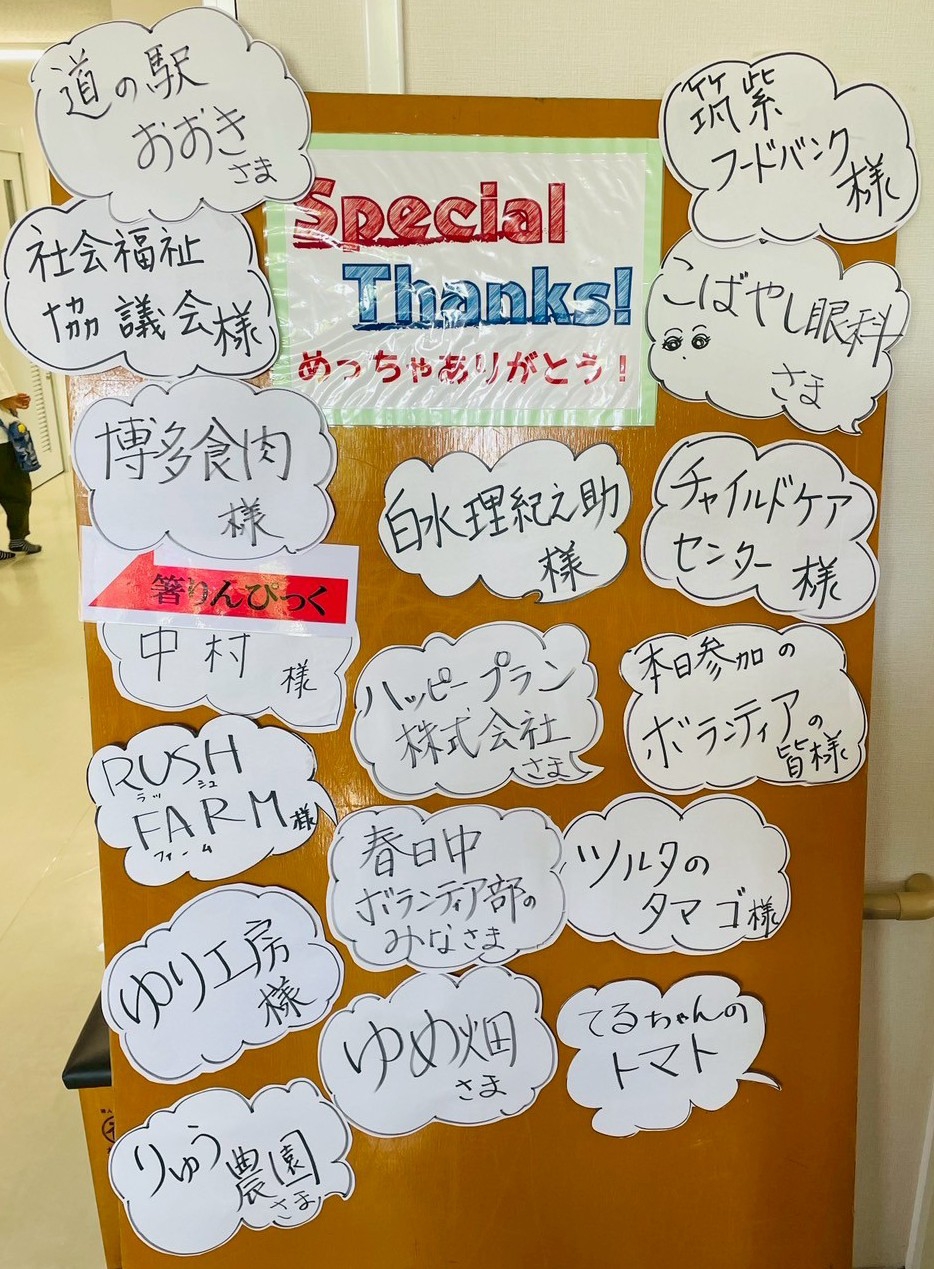 道の駅
おおき
さま
社会福祉
協議会様
博多食肉
様
箸りんぴっく
中村
様
RUSH
ラッシュ
FARM様
ファーム
ゆり工房
様
りゅう農園
さま
Special
Thanks!
めっちゃありがとう！
白水理紀之助
様
ハッピープラン
株式会社
さま
春日中
ボランティア部の
みなさま
ゆめ畑
さま
筑紫
フードバンク
様
こばやし眼科
さま
チャイルドケア
センター 様
本日参加の
ボランティアの
皆様
ツルタの
タマゴ様
てるちゃんの
トマト